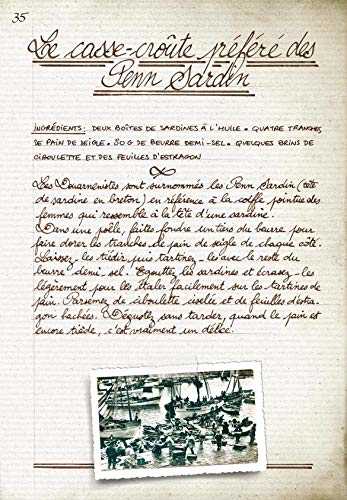 35
Le casse-croûte préféré des
Penn Sardin
INGRÉDIENTS: DEUX BOÎTES DE SARDINES À L'HUILE • QUATRE TRANCHES
DE PAIN DE SEIGLE • 80 G DE BEURRE DEMI-SEL • QUELQUES BRINS DE
CIBOULETTE ET DES FEUILLES D'ESTRAGON
Les Douarnenistes sont surnommés les Penn Sardin (tête
de sardine en breton) en référence à la coiffe pointue des
femmes qui ressemble à la tête d'une sardine.
Dans une poêle, faites fondre un tiers du beurre pour
faire dorer les tranches de pain de seigle de chaque côté.
Laissez-les tiédir puis tartinez-les avec le reste du
beurre demi-sel. Égouttez les sardines et écrasez-les
légèrement pour les étaler facilement sur les tartines de
pain. Parsemez de ciboulette ciselée et de feuilles d'estra-
gon hachées. Dégustez sans tarder, quand le pain est
encore tiède, c'est vraiment un délice!